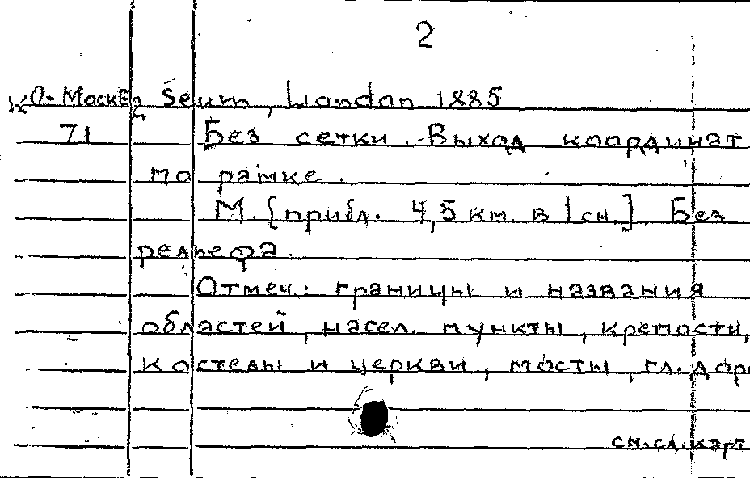 2
Ко-Москва Seum, London 1885
71 Без сетки. Выход координат
по рамке.
М. [прибл. 4,5 км. в 1 см.] Без
рельефа.
Отмеч.: границы и названия
областей, насел. пункты, крепости,
костелы и церкви, мосты, гл. дор
см. сл. карт